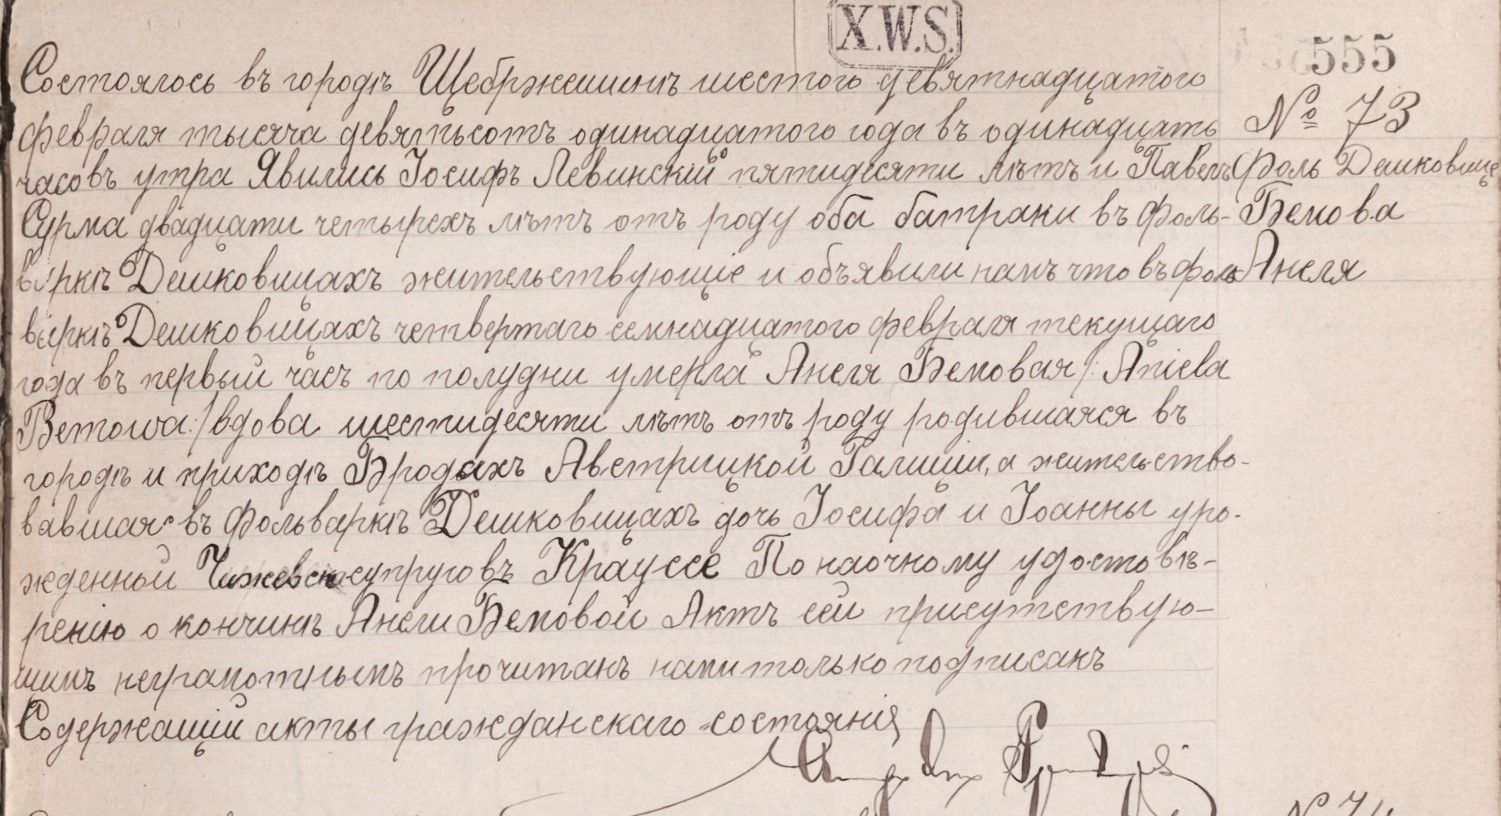 X.W.S.
555
Состоялось въ городѣ Щебржешинѣ шестого девятнадцатого
февраля тысяча девятьсотъ одинадцатого года въ одинадцать
часовъ утра Явились Іосифъ Левинскій пятидесяти лѣтъ и Павелъ
Сурма двадцати четырехъ лѣтъ отъ роду оба батраки въ Фоль-
варкѣ Дешковицахъ жительствующіе и объявили намъ что въ фоль
варкѣ Дешковицахъ четвертаго семнадцатого февраля текущаго
года въ первый часъ по полудни умерла Анеля Бемовая /: Aniela
Bemowa :/ вдова шестидесяти лѣтъ отъ роду родившаяся въ
городѣ и приходѣ Бродахъ Австрицкой Галиціи, а жительство-
вавшая въ фольваркѣ Дешковицахъ дочь Іосифа и Іоанны уро-
жденной супруговъ Крауссе По наочному удостовѣ-
рению о кончинѣ Анели Бемовой Актъ сей присутствую-
щимъ неграмотнымъ прочитанъ нами только подписанъ
Содержащій акты гражданскаго состоянія
№ 73
Фоль Дешковице
Бемова
Анеля